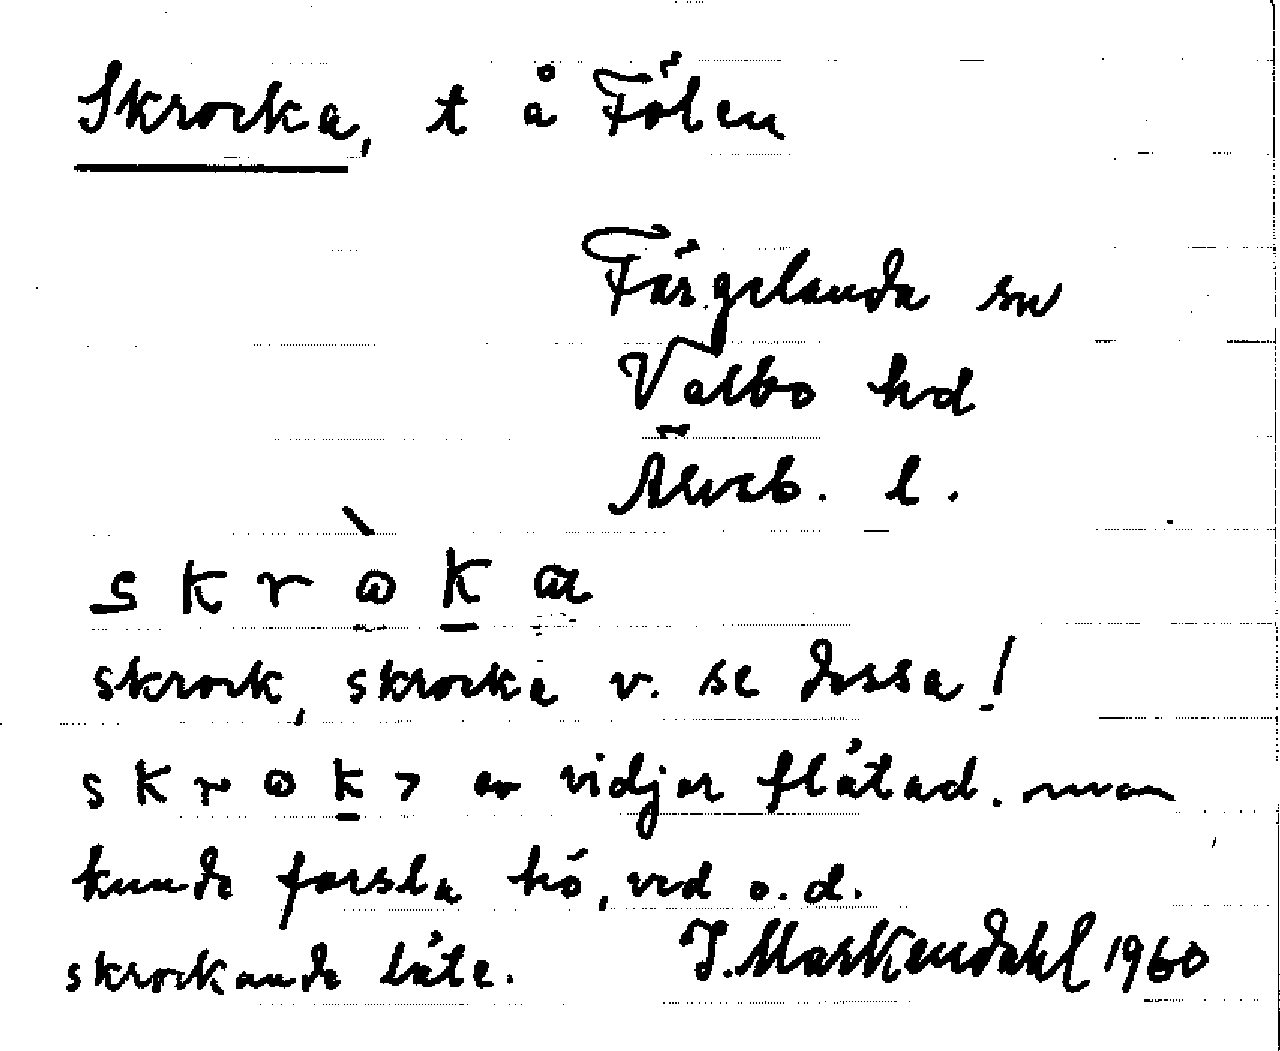 Skrocka, t å Fölen
Färgelanda sn
Valbo hd
Älvsb. l.
s k r ò k a
skrock, skrocka v. se dessa!
s k r o k > av vidjor flätad. man
kunde forsla hö, ved o.d.
skrockande läte. J. Maskendahl 1960